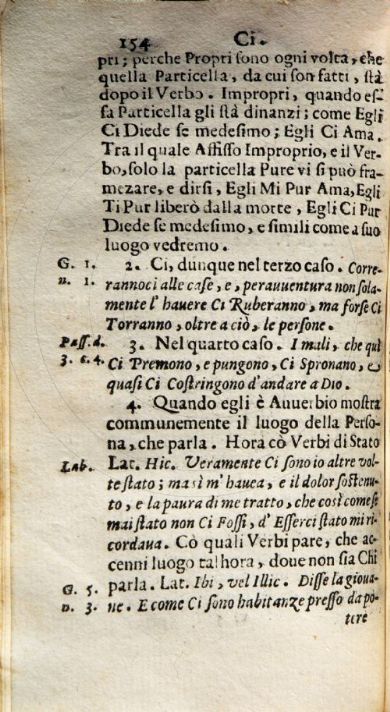 154 Ci.
pri; perche Propri sono ogni volta, che
quella Particella, da cui son fatti, stà
dopo il Verbo. Impropri, quando es-
sa Particella gli stà dinanzi; come Egli
Ci Diede se medesimo; Egli Ci Ama.
Tra il quale Affisso Improprio, e il Ver-
bo, solo la particella Pure vi si può fra-
mezare, e dirsi, Egli Mi Pur Ama, Egli
Ti Pur liberò dalla morte, Egli Ci Pur
Diede se medesimo, e simili come a suo
luogo vedremo.
G. 1. 2. Ci, dunque nel terzo caso. Corre-
n. 1. rannoci alle case, e, perauuentura non sola-
mente l' hauere Ci Ruberanno, ma forse Ci
Torranno, oltre a ciò, le persone.
Pass. d. 3. Nel quarto caso. I mali, che quì
3. c. 4. Ci Premono, e pungono, Ci Spronano, e
quasi Ci Costringono d'andare a Dio.
4. Quando egli è Auuerbio mostra
communemente il luogo della Perso-
na, che parla. Hora cò Verbi di Stato
Lab. Lat. Hic. Veramente Ci sono io altre vol-
te stato; ma sì m' hauea, e il dolor sostenu-
to, e la paura di me tratto, che così come se
mai stato non Ci Fossi, d' Esserci stato mi ri-
cordaua. Cò quali Verbi pare, che ac-
cenni luogo tal hora, doue non sia Chi
G. 5. parla. Lat. Ibi, vel Illic. Disse la gioua-
n. 3. ne. E come Ci sono habitanze presso da po-
tere